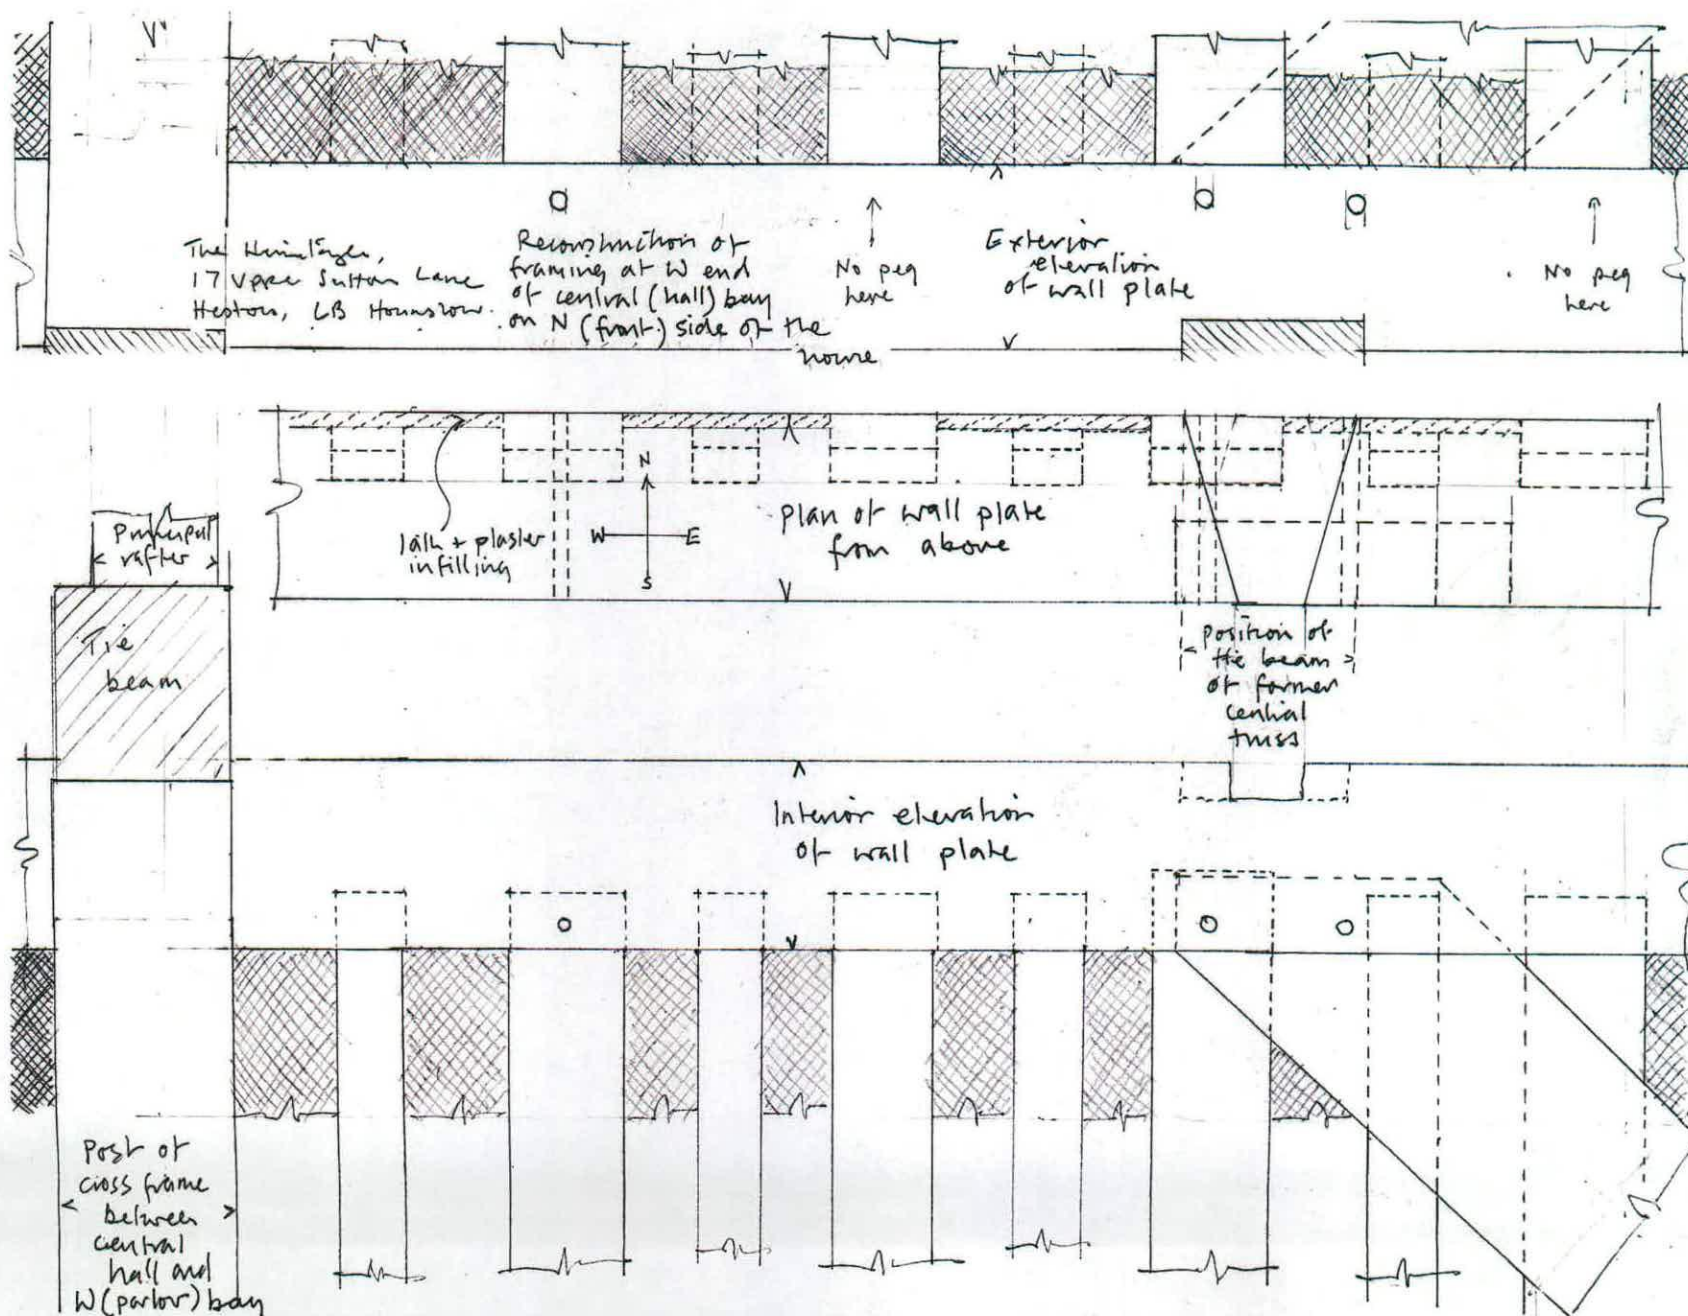 The Hermitage,
17 Upper Sutton Lane
Heston, LB Hounslow.
Reconstruction of
framing at W end
of central (hall) bay
on N (front) side of the
house
No peg
here
Exterior
elevation
of wall plate
No peg
here
Principal
rafter
lath + plaster
infilling
N
W E
S
Plan of wall plate
from above
Tie
beam
position of
tie beam
of former
central
truss
Interior elevation
of wall plate
Post of
cross frame
between
central
hall and
W (parlor) bay